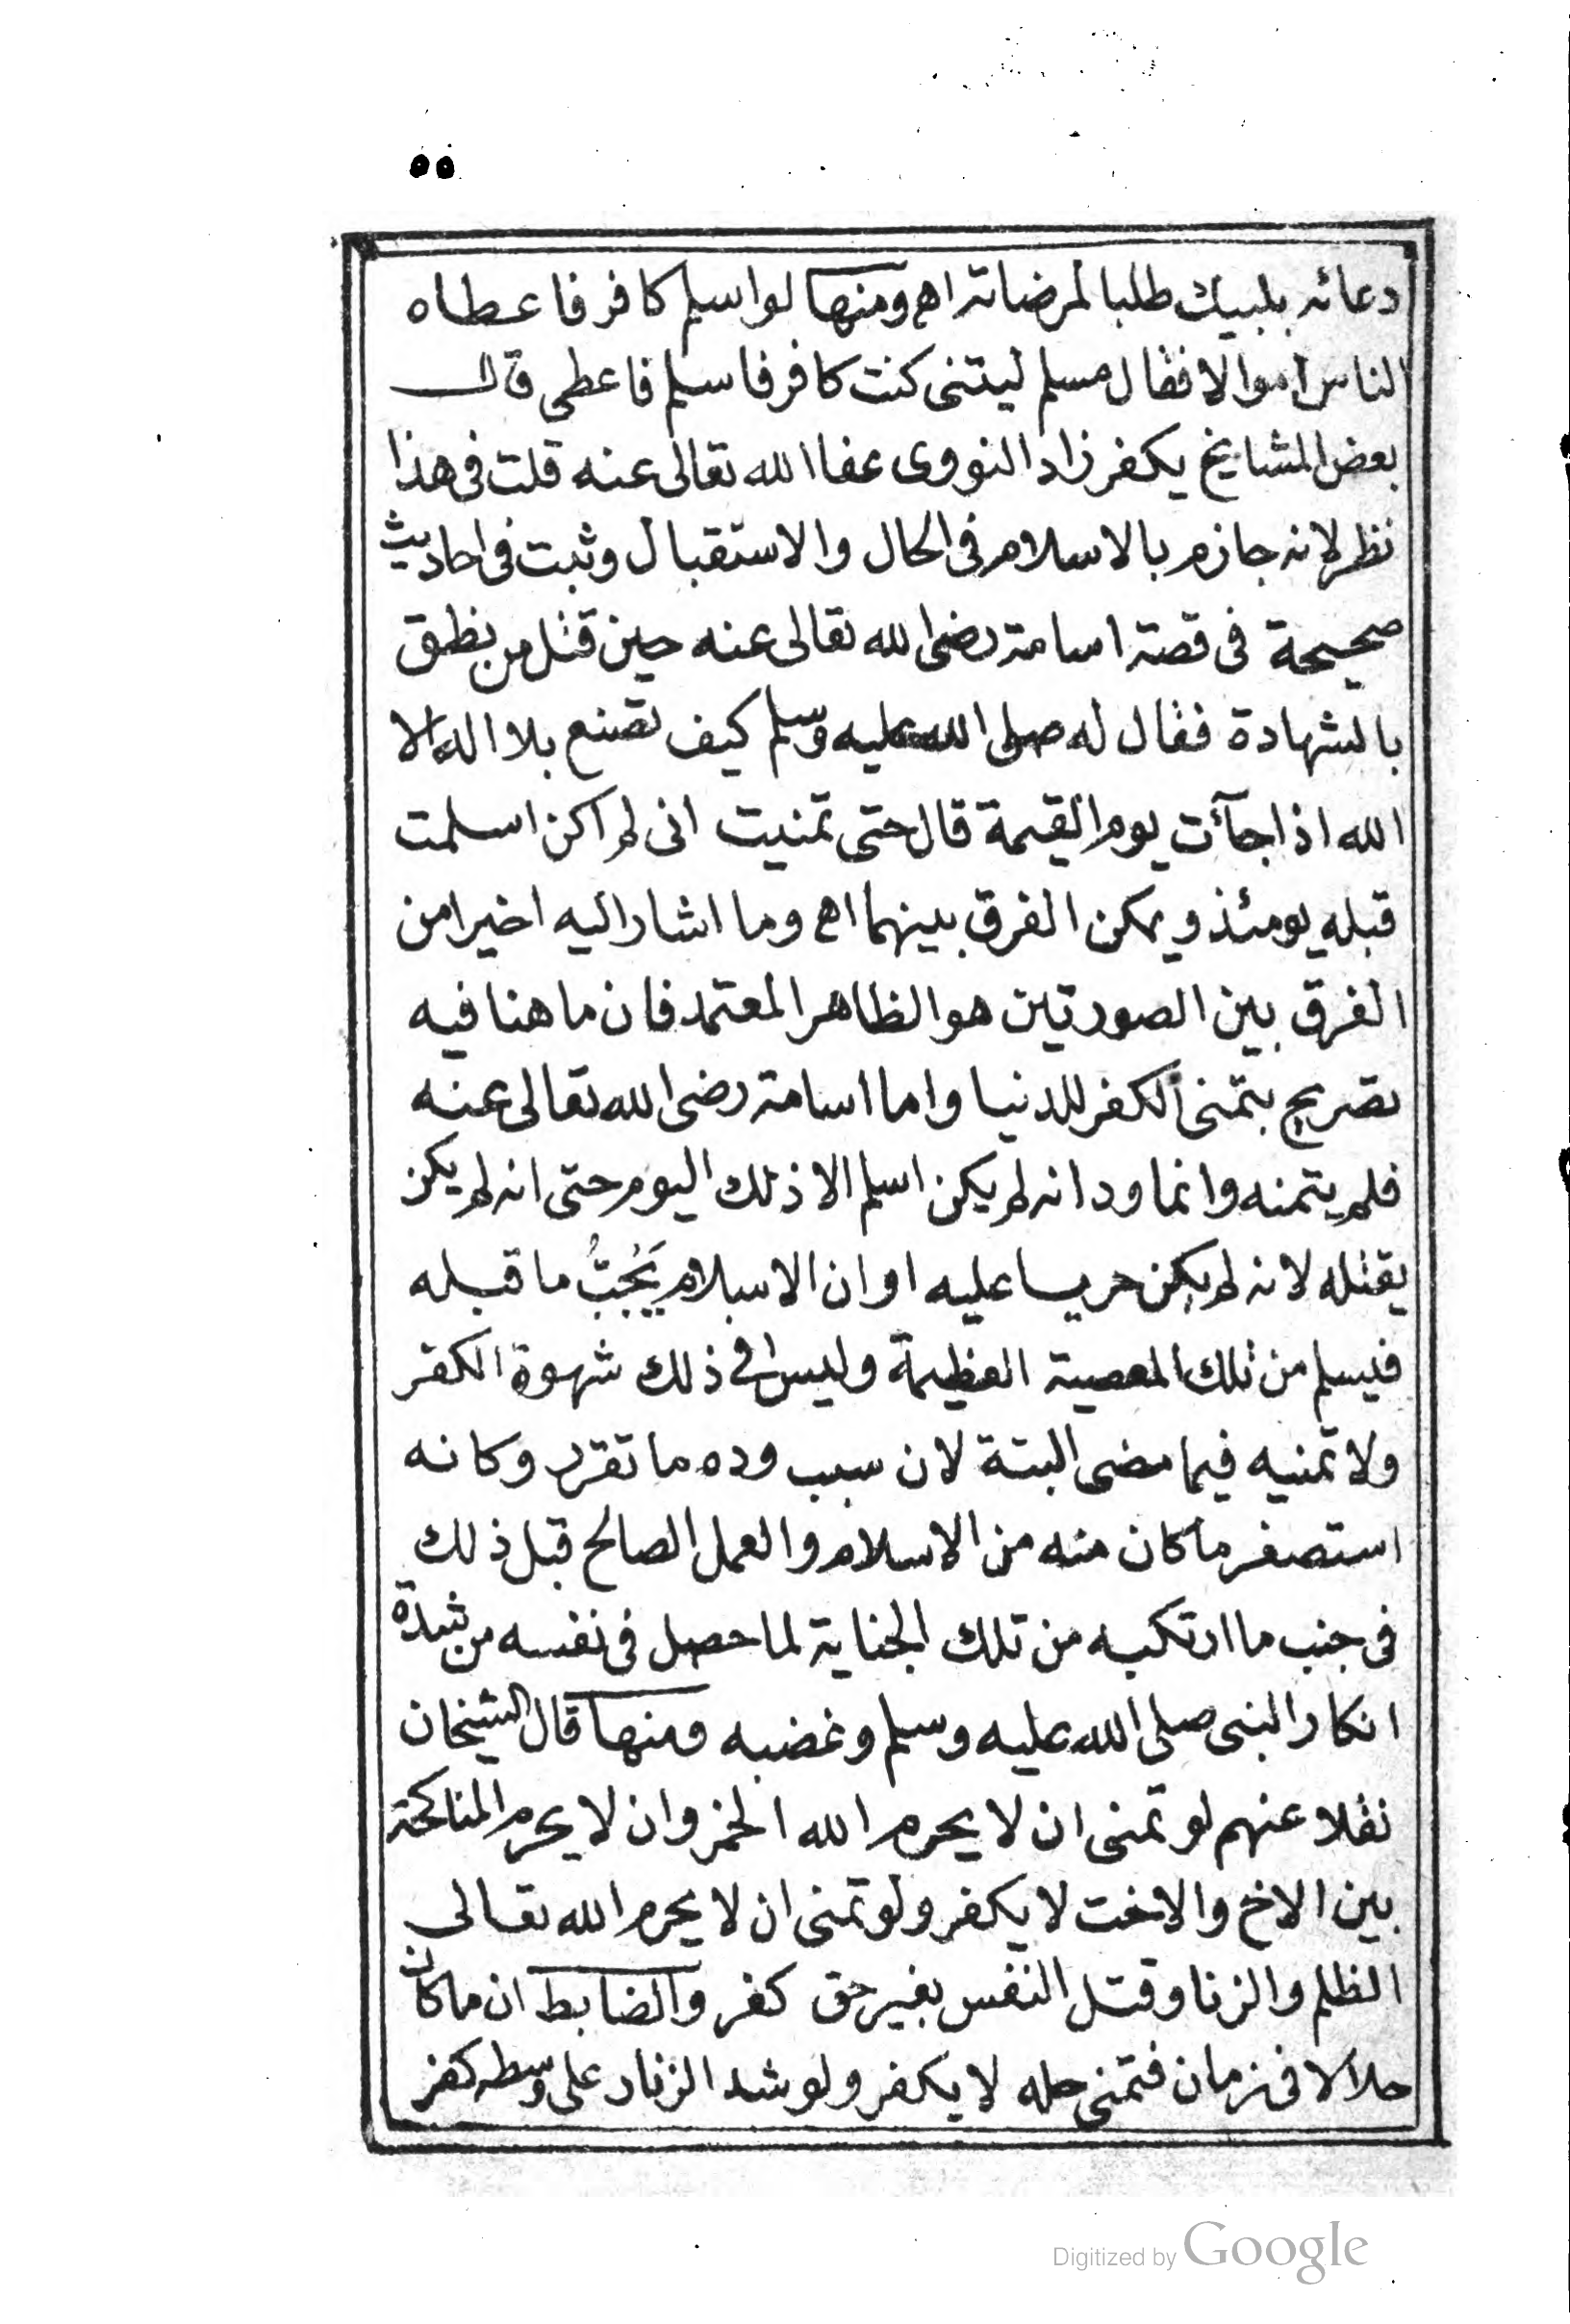 ٥٥
دعائه بلبيك طلبا لمرضاته اه ومنها لو اسلم كافر فاعطاه
الناس اموالا فقال مسلم ليتنى كنت كافر فاسلم فاعطى قال
بعض المشايخ يكفر زاد النووى عفا الله تعالى عنه قلت فى هذا
نظر لانه جازم بالاسلام فى الحال والاستقبال وثبت فى احاديث
صحيحة فى قصة اسامة رضى الله تعالى عنه حين قتل من نطق
بالشهادة فقال له صلى الله عليه وسلم كيف تصنع بلا اله الا
الله اذا جآءت يوم القيمة قال حتى تمنيت انى لم اكن اسلمت
قبله يومئذ ويمكن الفرق بينهما اه وما اشار اليه اخيرا من
الفرق بين الصورتين هو الظاهر المعتمد فان ما هنا فيه
تصريح بتمنى الكفر للدنيا واما اسامة رضى الله تعالى عنه
فلم يتمنه وانما ود انه لم يكن اسلم الا ذلك اليوم حتى انه لم يكن
يقتله لانه لم يكن حربيا عليه او ان الاسلام يَجُبُّ ما قبله
فيسلم من تلك المعصية العظيمة وليس فى ذلك شهوة الكفر
ولا تمنيه فيما مضى البتة لان سبب وده ما تقرر وكانه
استصغر ما كان منه من الاسلام والعمل الصالح قبل ذلك
فى جنب ما ارتكبه من تلك الجناية لما حصل فى نفسه من شدة
انكار النبى صلى الله عليه وسلم وغضبه ومنها قال الشيخان
نقلا عنهم لو تمنى ان لا يحرم الله الخمر وان لا يحرم المناكحة
بين الاخ والاخت لا يكفر ولو تمنى ان لا يحرم الله تعالى
الظلم والزنا وقتل النفس بغير حق كفر والضابط ان ما كان
حلالا فى زمان فتمنى حله لا يكفر ولو شد الزنار على وسطه كفر
Digitized by Google